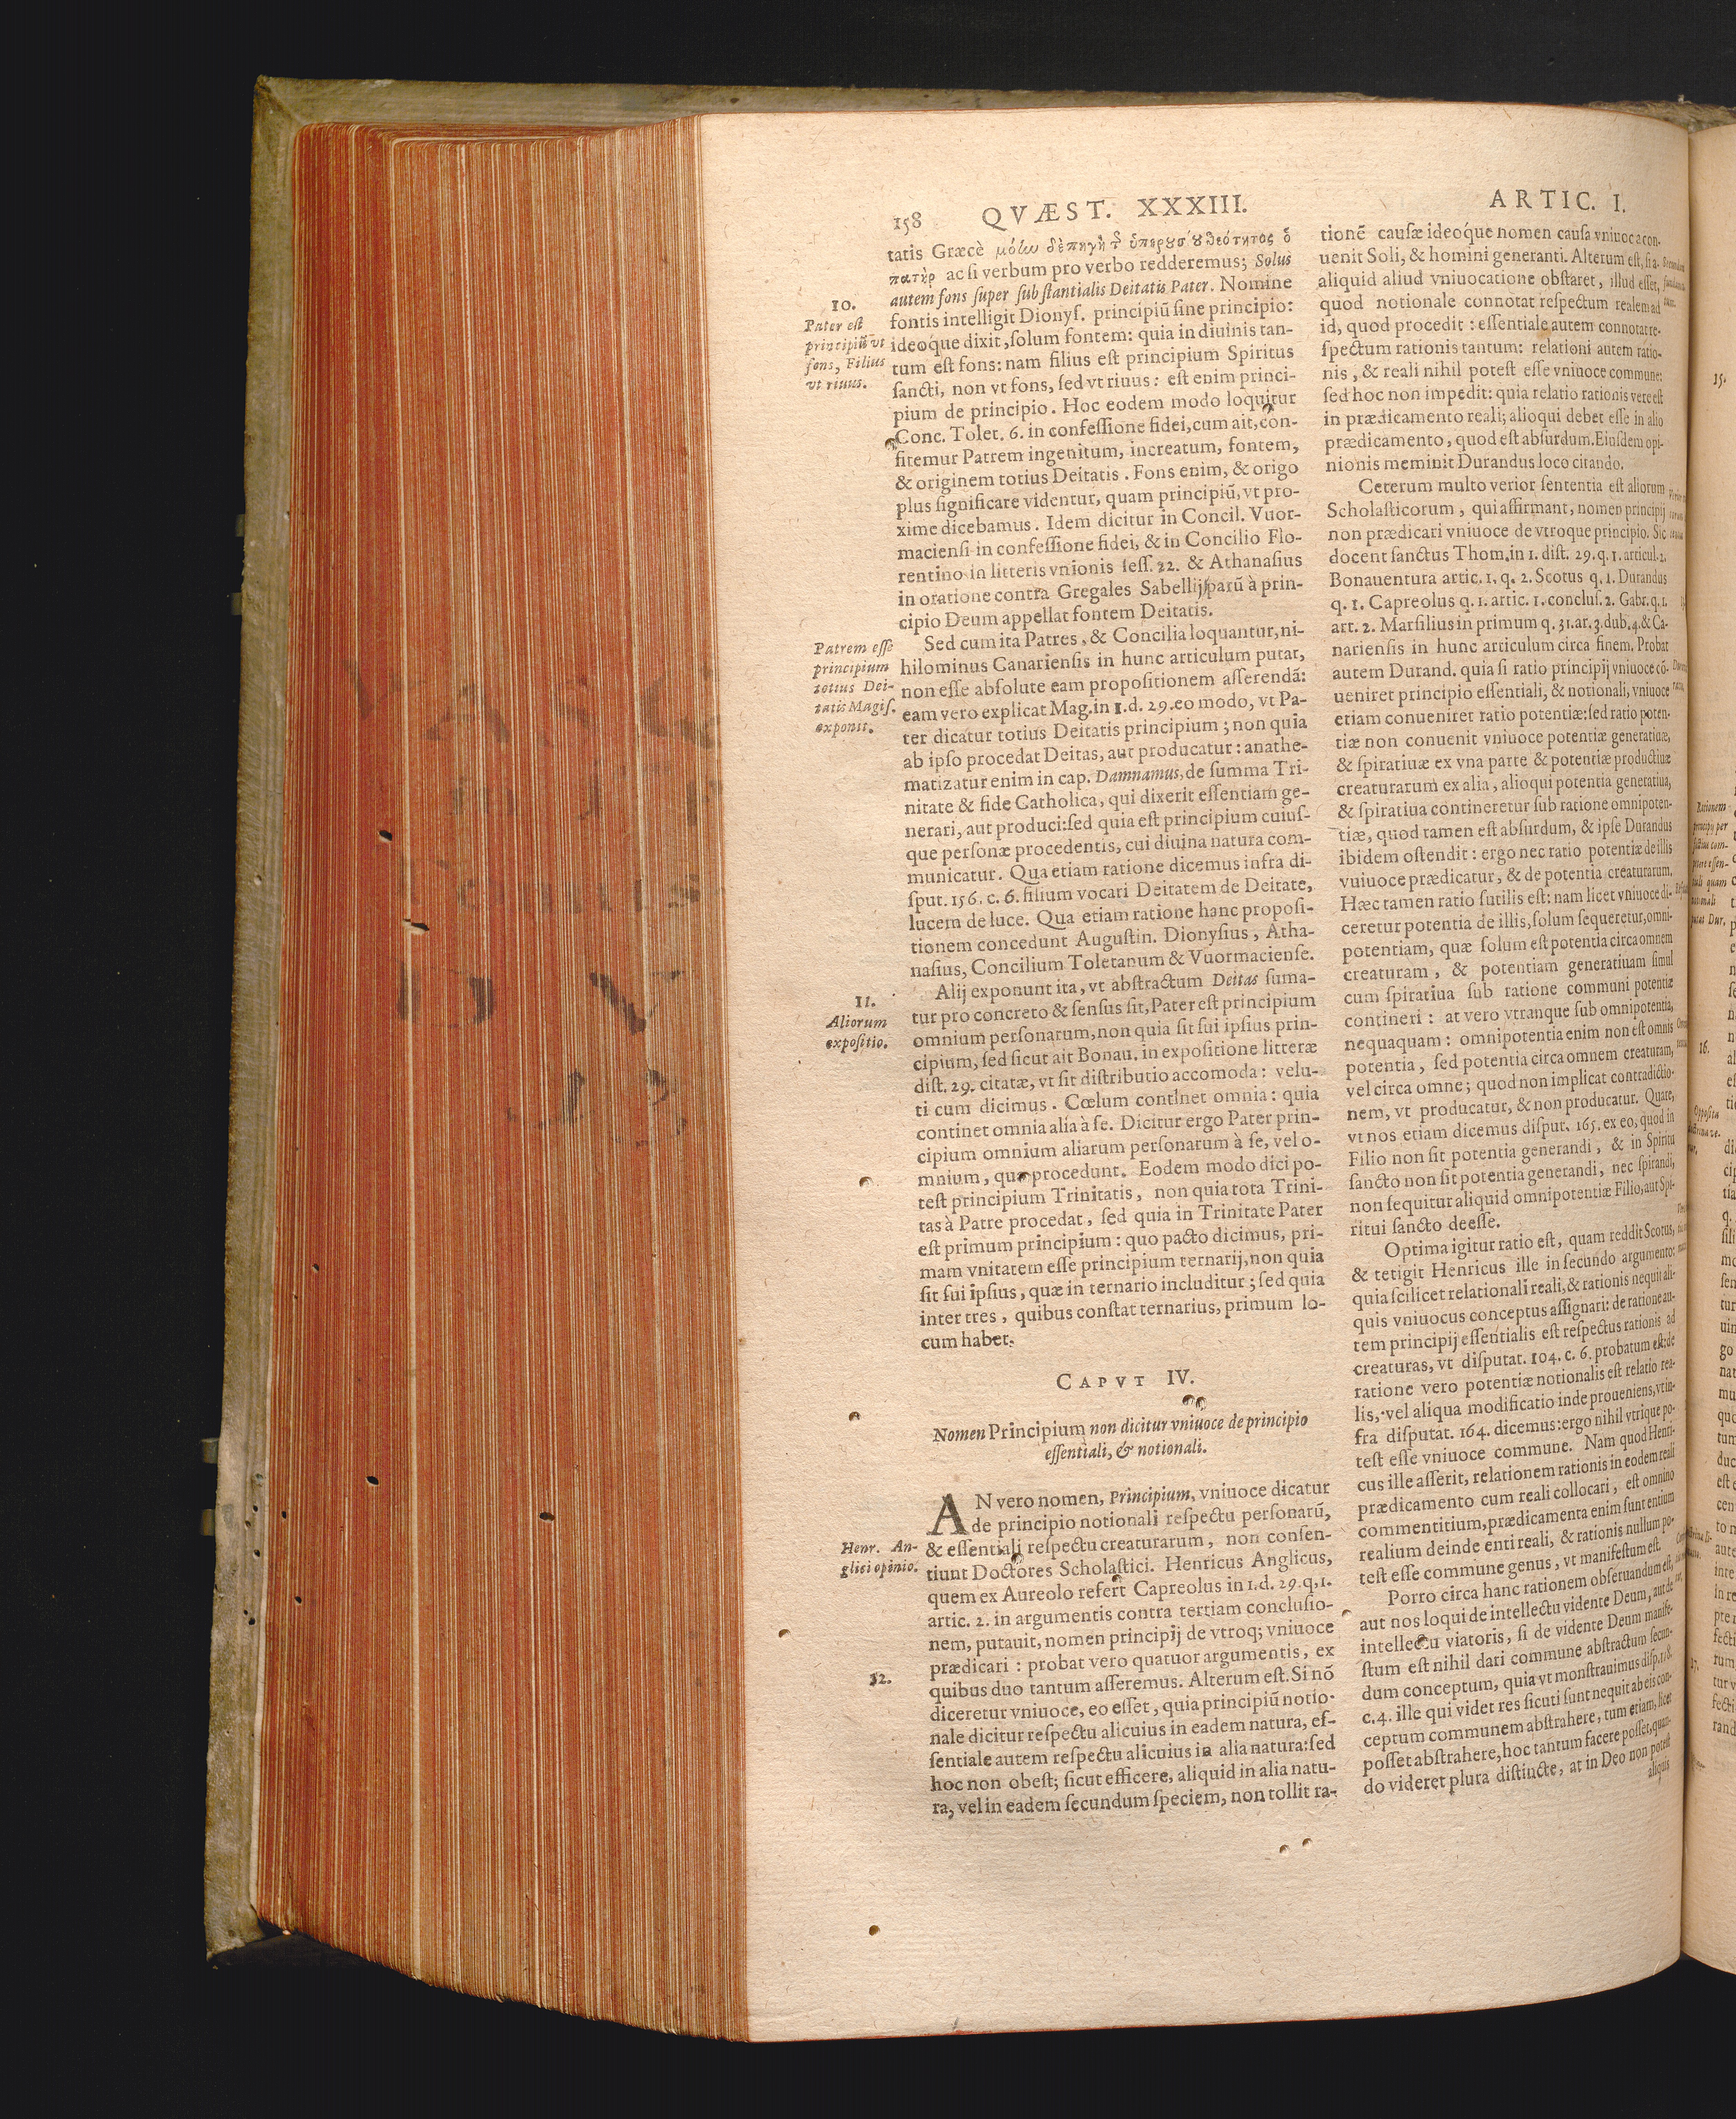 158 QVÆST. XXXIII. ARTIC. I.
tatis Græcè
πατὴρ ac si verbum pro verbo redderemus; Solus
autem fons super substantialis Deitatis Pater. Nomine
fontis intelligit Dionys. principiũ sine principio:
ideoque dixit, solum fontem: quia in diuinis tan-
tum est fons: nam filius est principium Spiritus
sancti, non vt fons, sed vt riuus: est enim princi-
pium de principio. Hoc eodem modo loquitur
Conc. Tolet. 6. in confessione fidei, cum ait, con-
fitemur Patrem ingenitum, increatum, fontem,
& originem totius Deitatis. Fons enim, & origo
plus significare videntur, quam principiũ, vt pro-
xime dicebamus. Idem dicitur in Concil. Vuor-
maciensi in confessione fidei, & in Concilio Flo-
rentino in litteris vnionis sess. 22. & Athanasius
in oratione contra Gregales Sabellij parũ à prin-
cipio Deum appellat fontem Deitatis.
Sed cum ita Patres, & Concilia loquantur, ni-
hilominus Canariensis in hunc articulum putat,
non esse absolute eam propositionem asserendã:
eam vero explicat Mag. in 1. d. 29. eo modo, vt Pa-
ter dicatur totius Deitatis principium; non quia
ab ipso procedat Deitas, aut producatur: anathe-
matizatur enim in cap. Damnamus, de summa Tri-
nitate & fide Catholica, qui dixerit essentiam ge-
nerari, aut produci: sed quia est principium cuius-
que personæ procedentis, cui diuina natura com-
municatur. Qua etiam ratione dicemus infra di-
sput. 156. c. 6. filium vocari Deitatem de Deitate,
lucem de luce. Qua etiam ratione hanc proposi-
tionem concedunt Augustin. Dionysius, Atha-
nasius, Concilium Toletanum & Vuormaciense.
Alij exponunt ita, vt abstractum Deitas suma-
tur pro concreto & sensus sit, Pater est principium
omnium personarum, non quia sit sui ipsius prin-
cipium, sed sicut ait Bonau. in expositione litteræ
dist. 29. citatæ, vt sit distributio accomoda: velu-
ti cum dicimus. Cœlum continet omnia: quia
continet omnia alia à se. Dicitur ergo Pater prin-
cipium omnium aliarum personarum à se, vel o-
mnium, quæ procedunt. Eodem modo dici po-
test principium Trinitatis, non quia tota Trini-
tas à Patre procedat, sed quia in Trinitate Pater
est primum principium: quo pacto dicimus, pri-
mam vnitatem esse principium ternarij, non quia
sit sui ipsius, quæ in ternario includitur; sed quia
inter tres, quibus constat ternarius, primum lo-
cum habet.
CAPVT IV.
Nomen Principium non dicitur vniuoce de principio
essentiali, & notionali.
AN vero nomen, Principium, vniuoce dicatur
de principio notionali respectu personarũ,
& essentiali respectu creaturarum, non consen-
tiunt Doctores Scholastici. Henricus Anglicus,
quem ex Aureolo refert Capreolus in 1. d. 29. q. 1.
artic. 2. in argumentis contra tertiam conclusio-
nem, putauit, nomen principij de vtroq; vniuoce
prædicari: probat vero quatuor argumentis, ex
quibus duo tantum asseremus. Alterum est. Si nõ
diceretur vniuoce, eo esset, quia principiũ notio-
nale dicitur respectu alicuius in eadem natura, es-
sentiale autem respectu alicuius in alia natura: sed
hoc non obest; sicut efficere, aliquid in alia natu-
ra, vel in eadem secundum speciem, non tollit ra-
10.
Pater est
principiũ vt
fons, Filius
vt riuus.
Patrem esse
principium
totius Dei-
tatis Magis.
exponit.
11.
Aliorum
expositio.
Henr. An-
glici opinio.
12.
tionẽ causæ ideoque nomen causa vniuoca con-
uenit Soli, & homini generanti. Alterum est, si a-
aliquid aliud vniuocatione obstaret, illud esset,
quod notionale connotat respectum realem ad
id, quod procedit: essentiale autem connotat re-
spectum rationis tantum: relationi autem ratio-
nis, & reali nihil potest esse vniuoce commune:
sed hoc non impedit: quia relatio rationis vere est
in prædicamento reali; alioqui debet esse in alio
prædicamento, quod est absurdum. Eiusdem opi-
nionis meminit Durandus loco citando.
Ceterum multo verior sententia est aliorum
Scholasticorum, qui affirmant, nomen principij
non prædicari vniuoce de vtroque principio. Sic
docent sanctus Thom. in 1. dist. 29. q. 1. articul. 2.
Bonauentura artic. 1. q. 2. Scotus q. 1. Durandus
q. 1. Capreolus q. 1. artic. 1. conclus. 2. Gabr. q. 1.
art. 2. Marsilius in primum q. 31. ar. 3. dub. 4. & Ca-
nariensis in hunc articulum circa finem. Probat
autem Durand. quia si ratio principij vniuoce cõ-
ueniret principio essentiali, & notionali, vniuoce
etiam conueniret ratio potentiæ: sed ratio poten-
tiæ non conuenit vniuoce potentiæ generatiuæ,
& spiratiuæ ex vna parte & potentiæ productiuæ
creaturarum ex alia, alioqui potentia generatiua,
& spiratiua contineretur sub ratione omnipoten-
tiæ, quod tamen est absurdum, & ipse Durandus
ibidem ostendit: ergo nec ratio potentiæ de illis
vniuoce prædicatur, & de potentia creaturarum.
Hæc tamen ratio futilis est: nam licet vniuoce di-
ceretur potentia de illis, solum sequeretur, omni-
potentiam, quæ solum est potentia circa omnem
creaturam, & potentiam generatiuam simul
cum spiratiua sub ratione communi potentiæ
contineri: at vero vtranque sub omnipotentia,
nequaquam: omnipotentia enim non est omnis
potentia, sed potentia circa omnem creaturam,
vel circa omne; quod non implicat contradictio-
nem, vt producatur, & non producatur. Quare,
vt nos etiam dicemus disput. 165. ex eo, quod in
Filio non sit potentia generandi, & in Spiritu
sancto non sit potentia generandi, nec spirandi,
non sequitur aliquid omnipotentiæ Filio, aut Spi-
ritui sancto deesse.
Optima igitur ratio est, quam reddit Scotus,
& tetigit Henricus ille in secundo argumento:
quia scilicet relationali reali, & rationis nequit ali-
quis vniuocus conceptus assignari: de ratione au-
tem principij essentialis est respectus rationis ad
creaturas, vt disputat. 104. c. 6. probatum est: de
ratione vero potentiæ notionalis est relatio rea-
lis, vel aliqua modificatio inde proueniens, vt in-
fra disputat. 164. dicemus: ergo nihil vtrique po-
test esse vniuoce commune. Nam quod Henri-
cus ille asserit, relationem rationis in eodem reali
prædicamento cum reali collocari, est omnino
commentitium, prædicamenta enim sunt entium
realium deinde enti reali, & rationis nullum po-
test esse commune genus, vt manifestum est.
Porro circa hanc rationem obseruandum est,
aut nos loqui de intellectu vidente Deum, aut de
intellectu viatoris, si de vidente Deum manife-
stum est nihil dari commune abstractum secun-
dum conceptum, quia vt monstrauimus disp. 118.
c. 4. ille qui videt res sicuti sunt nequit ab eis con-
ceptum communem abstrahere, tum etiam, licet
posset abstrahere, hoc tantum facere posset, quan-
do videret plura distincte, at in Deo non potest
aliquis
15.
16.
17.